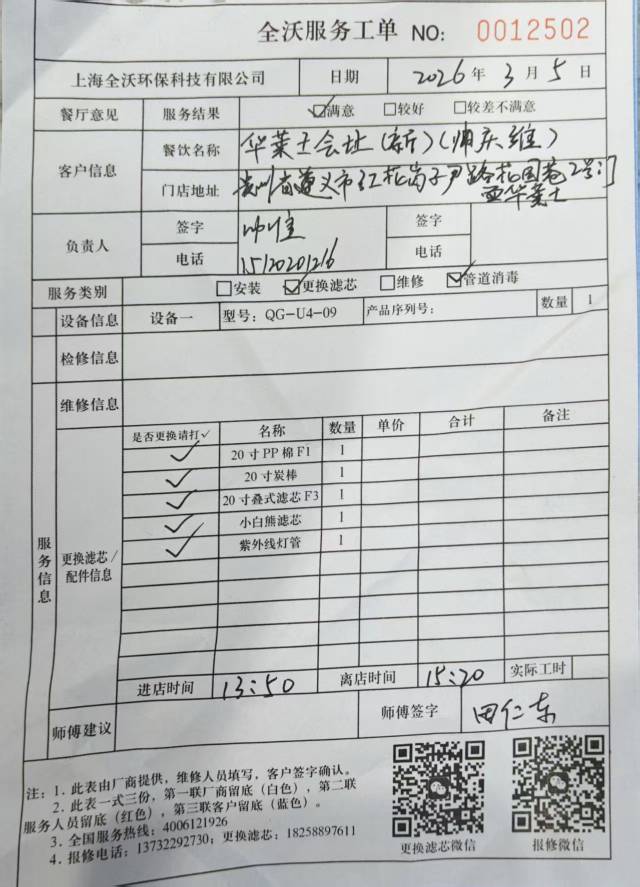 全沃服务工单 NO: 0012502
上海全沃环保科技有限公司 日期 2026年3月5日
餐厅意见 服务结果 ☑满意 □较好 □较差不满意
客户信息 餐饮名称 华莱士会址(新)(帅庆维)
门店地址 贵州省遵义市红花岗子尹路 2号门
华莱士
负责人 签字 签字
电话 15120201216 电话
服务类别 □安装 ☑更换滤芯 □维修 ☑管道消毒
设备信息 设备一 型号: QG-U4-09 产品序列号: 数量 1
检修信息
服务信息
维修信息
是否更换请打✓ 名称 数量 单价 合计 备注
更换滤芯/配件信息
✓ 20寸PP棉F1 1
✓ 20寸炭棒 1
✓ 20寸叠式滤芯F3 1
✓ 小白熊滤芯 1
✓ 紫外线灯管 1
进店时间 13:50 离店时间 15:20 实际工时
师傅建议 师傅签字 田仁东
注: 1. 此表由厂商提供，维修人员填写，客户签字确认。
2. 此表一式三份，第一联厂商留底（白色），第二联
服务人员留底（红色），第三联客户留底（蓝色）。
3. 全国服务热线: 4006121926
4. 报修电话: 13732292730; 更换滤芯: 18258897611
更换滤芯微信 报修微信